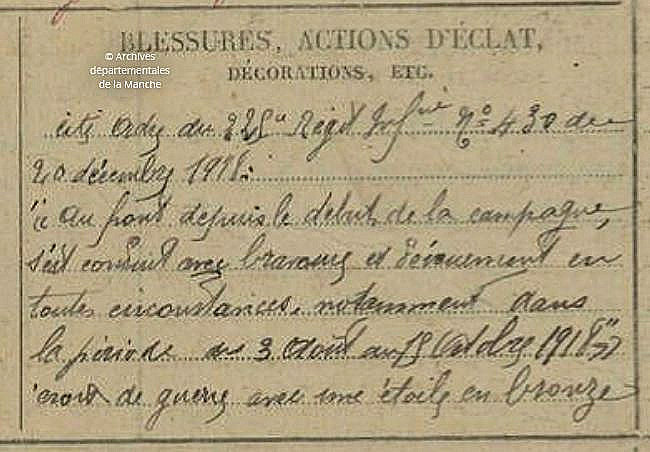 BLESSURES, ACTIONS D'ÉCLAT,
DÉCORATIONS, ETC.
© Archives
départementales
de la Manche
cité Ordre du 225e Régit Infrie No 430 du
20 décembre 1918:
"Au front depuis le début de la campagne,
s'est conduit avec bravoure et dévouement en
toutes circonstances, notamment dans
la période du 3 Août au 15 Octobre 1918"
croix de guerre avec une étoile en bronze